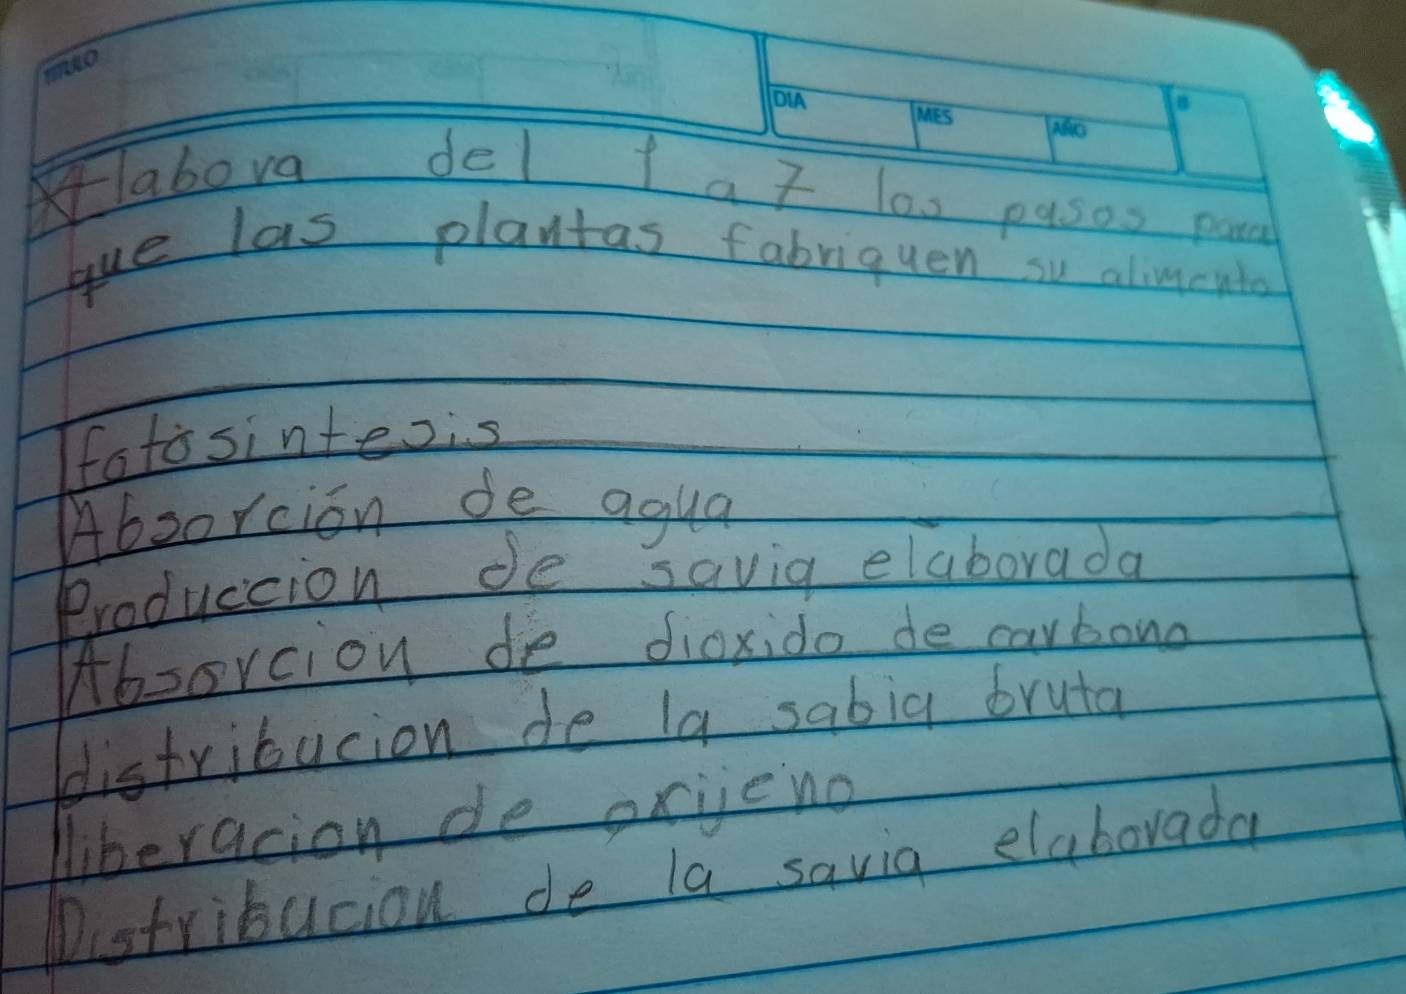 TITULO
DIA MES AÑO #
Elabora del 1 a 7 los pasos para
que las plantas fabriquen su alimento
fotosintesis
Absorción de agua
Produccion de savia elaborada
Absorcion de dioxido de carbono
distribucion de la sabia bruta
liberacion de oxijeno
Distribucion de la savia elaborada